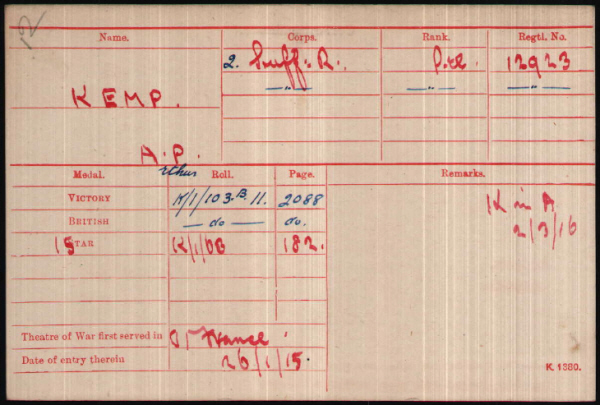 12
Name. Corps. Rank. Regtl. No.
2. Suff: R. Pte 12923
—„— —„— —„—
KEMP.
A. P.
rthur
Medal. Roll. Page. Remarks.
VICTORY K/1/103.B.11. 2088
BRITISH — do — do.
15 STAR K/1/6B 182.
K in A
2/3/16
Theatre of War first served in (1) France
Date of entry therein 26/1/15.
K. 1380.